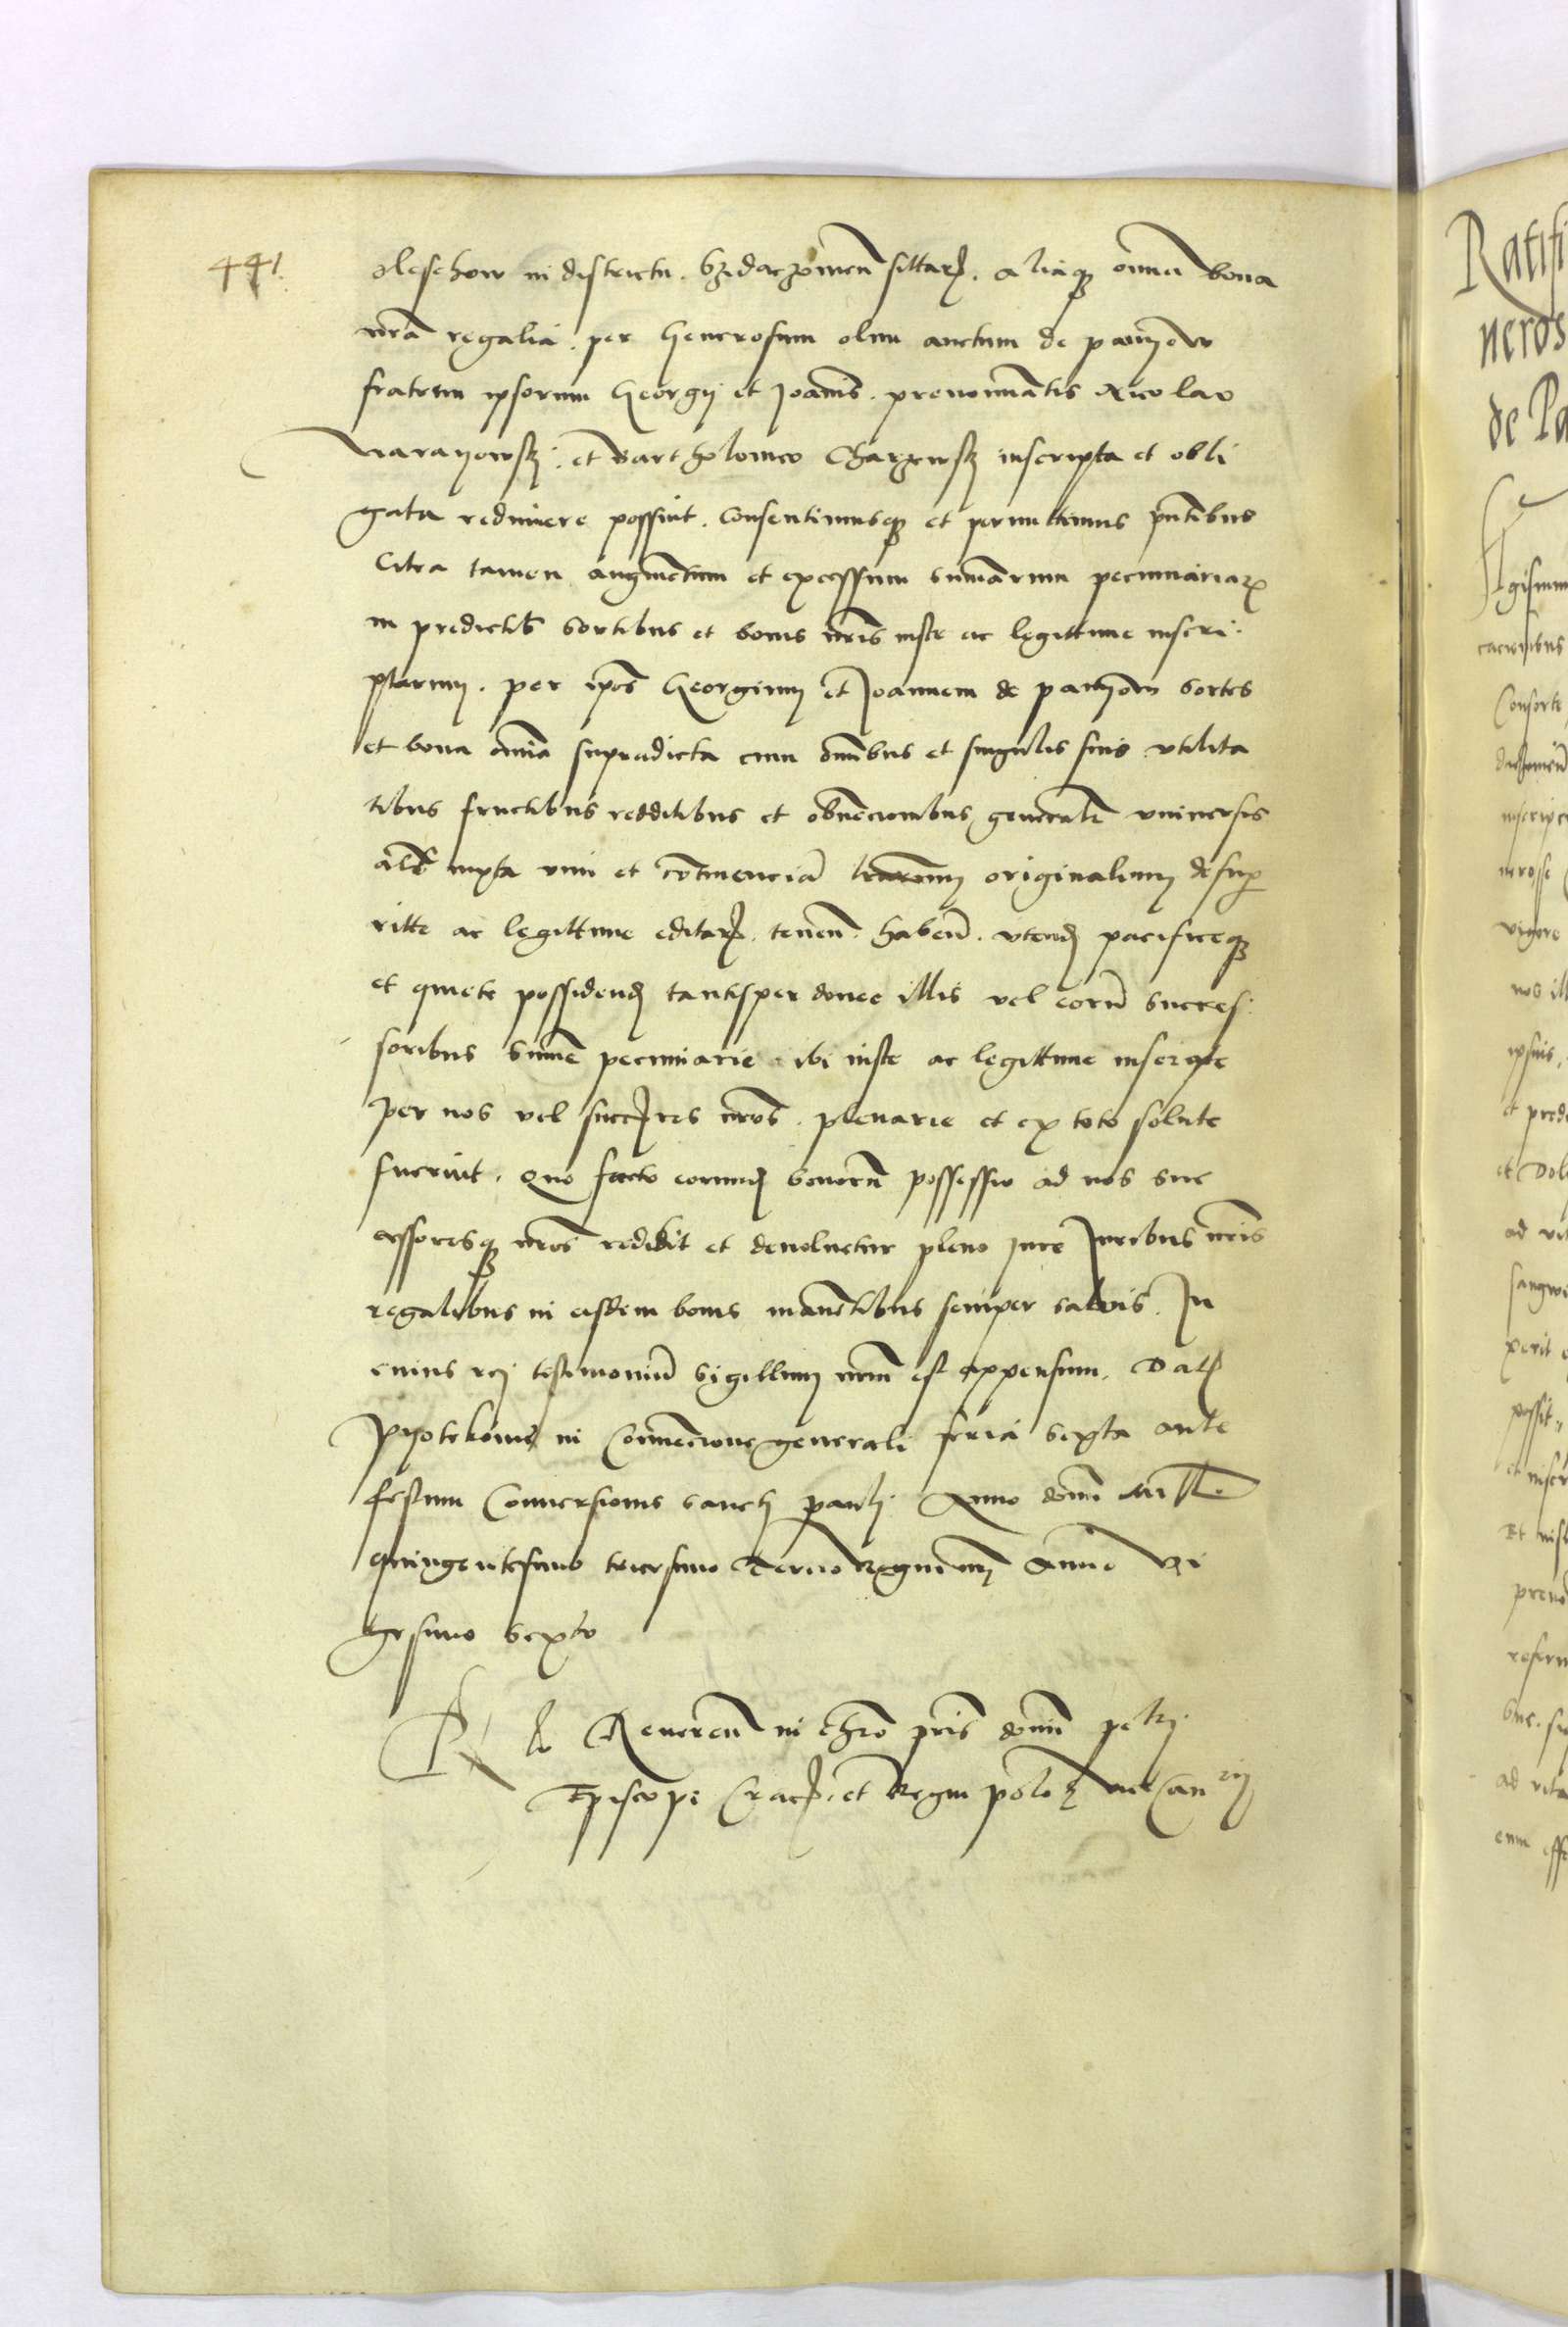 441.
oleschow in districtu. Szidaczowien̄ sittarꝫ. aliaqꝫ om̄ia bona
nr̄a regalia. per Generosum olim auctum de paniow
fratrem ipsorum Georgij et Joan̄is. prenomīatis Nicolao
Narayowskj. et Bartholomeo Charzewskj inscripta et obli
gata redimere possint. Consentimusqꝫ et permittimus pn̄tibus
Citra tamen augmētum et excessum summarum pecuniariaꝝ
in predictis sortibus et bonis nr̄is iuste ac legittime inscri:
ptarum. per ip̄os Georgium et Joannem de paniow sortes
et bona om̄ia supradicta cum om̄ibus et singulis suis utilita
tibus fructibus redditibus et obvēcionibus generalit̄ universis
al̄s iuxta vim et cōtinenciā l̄rarum originalium desup
ritte ac legittime editarꝫ. tenen̄. haben̄. vtendꝫ pacificeqꝫ
et quiete possidendꝫ tantisper donec illis vel eorū succes:
soribus sum̄e pecuniarie ibi iuste ac legittime inscripte
per nos vel succꝫres nr̄os. plenarie et ex toto solute
fuerint. Quo facto eorundꝫ bonorū possessio ad nos suc
cessoresqꝫ nr̄os redibit et devoluetur pleno jure Juribus nr̄is
regalibus in eisdem bonis manētibus semper salvis. In
cuius rej testimoniū sigillum nr̄m est appensum. Datꝫ
Pyotrkovie in Convencione generali feria sexta ante
festum Conversionis sancti pauli. Anno domi Mill.
quingentesimo tricesimo Tercio Regni nrj Anno Vi
gesimo sexto
Rlo Reveren̄ in chro pr̄is domī petrj
Episcopi Cracꝫ. et Regni polo vicecanrij
Ratifi
neros
de Pa